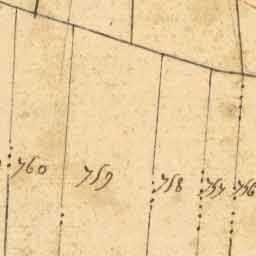 760 759 758 757 756